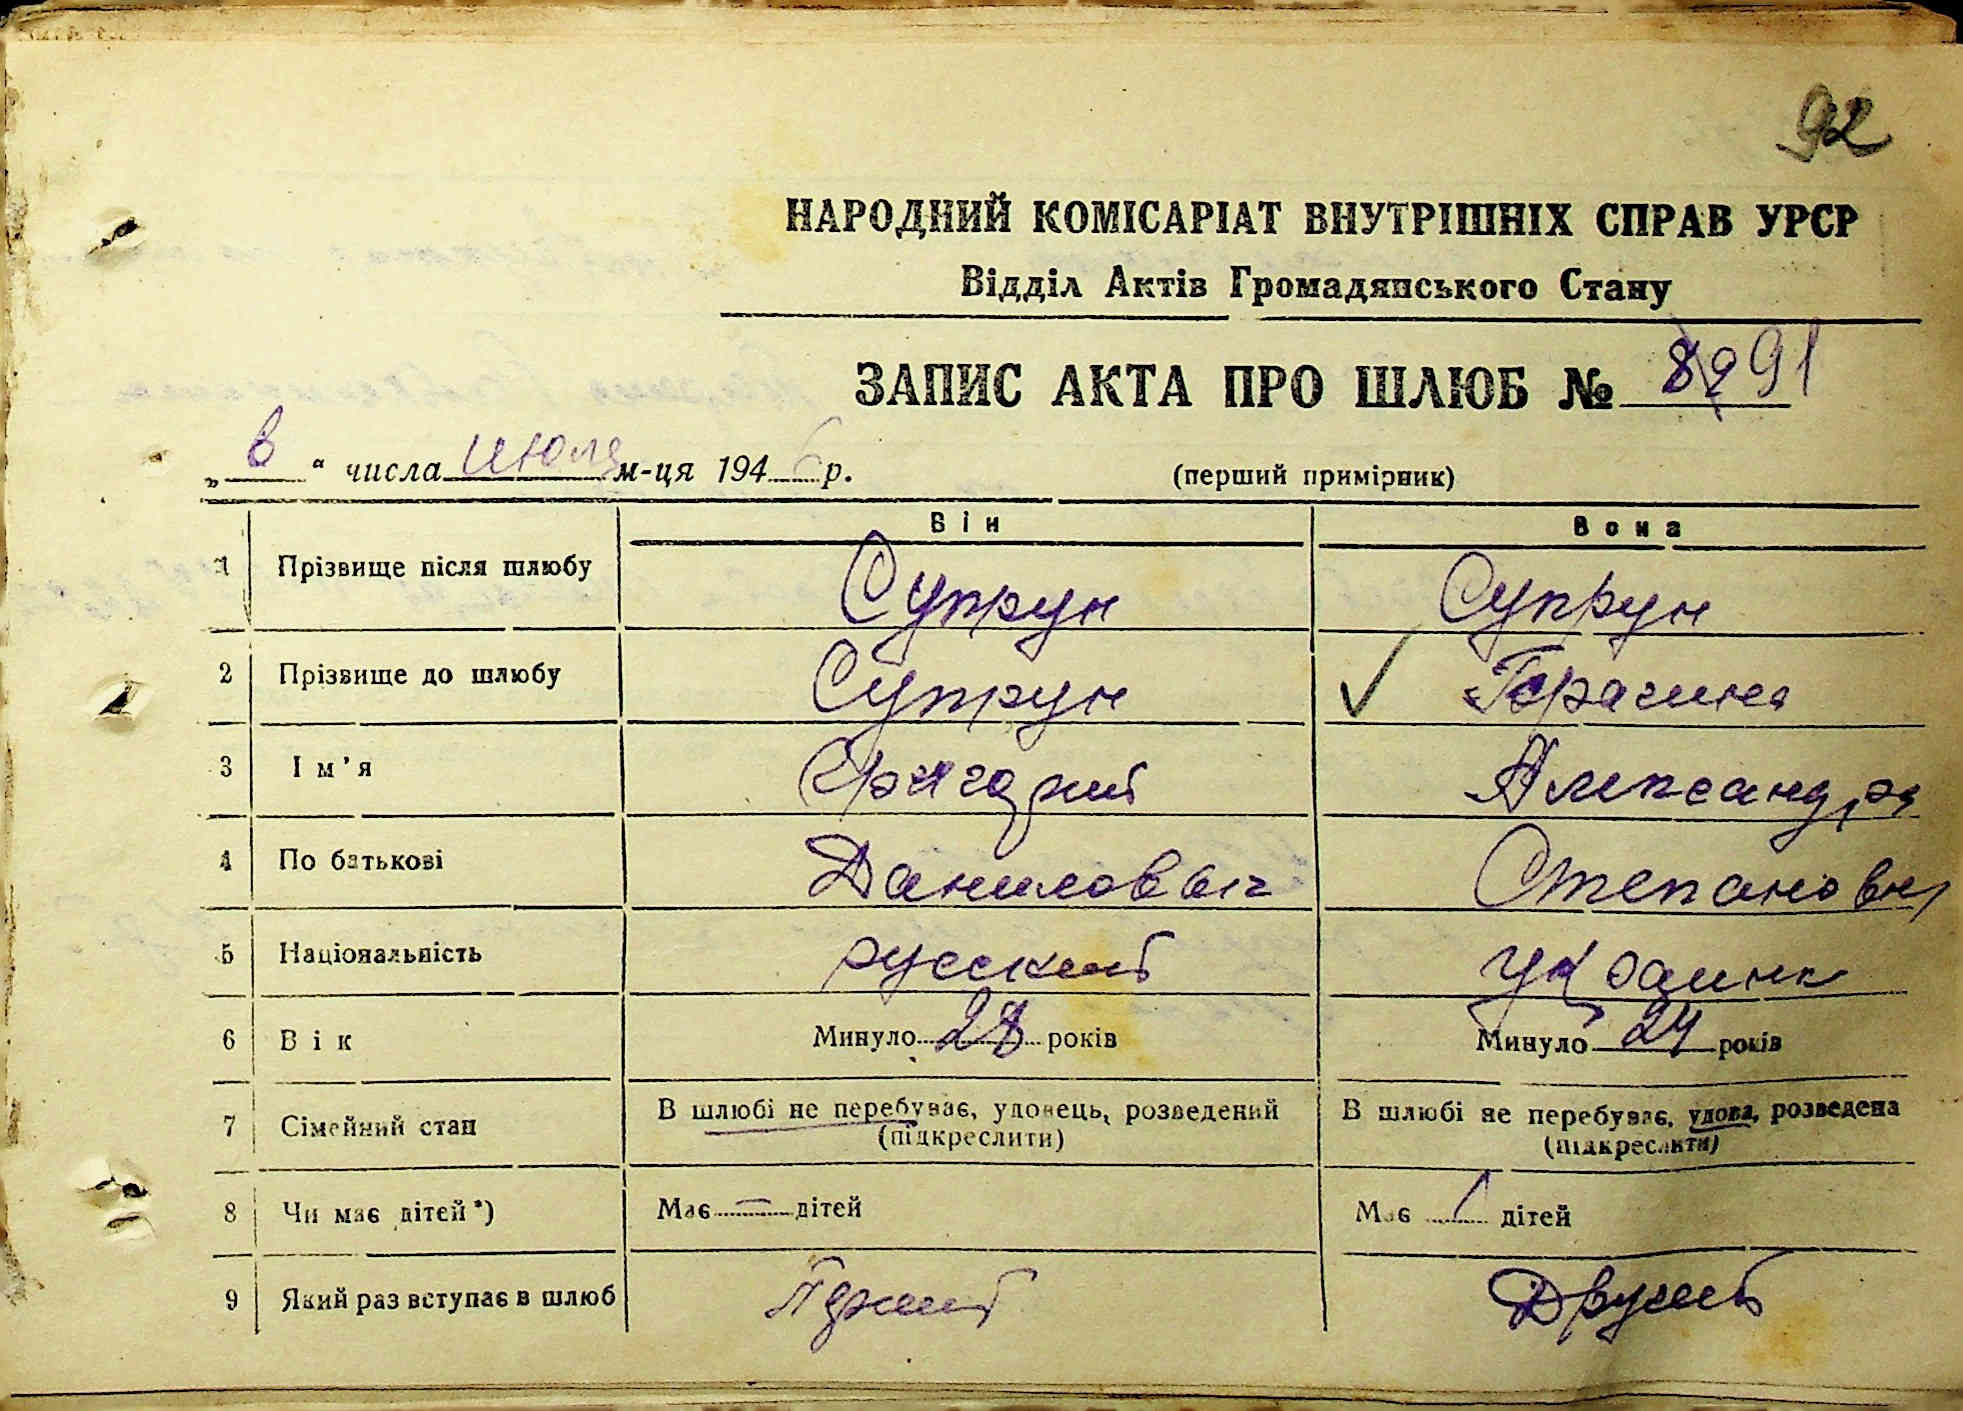 92
НАРОДНИЙ КОМІСАРІАТ ВНУТРІШНІХ СПРАВ УРСР
Відділ Актів Громадянського Стану
ЗАПИС АКТА ПРО ШЛЮБ № 91
„ 6 “ числа июля м-ця 194 6 р. (перший примірник)
Він Вона
1 Прізвище після шлюбу Супрун Супрун
2 Прізвище до шлюбу Супрун
3 Ім'я Александра
4 По батькові Даниловыч Степановна
5 Національність русский
6 Вік Минуло 28 років Минуло 24 років
7 Сімейний стан В шлюбі не перебуває, удовець, розведений В шлюбі не перебуває, удова, розведена
(підкреслити) (підкреслити)
8 Чи має дітей*) Має — дітей Має 1 дітей
9 Який раз вступає в шлюб Другий